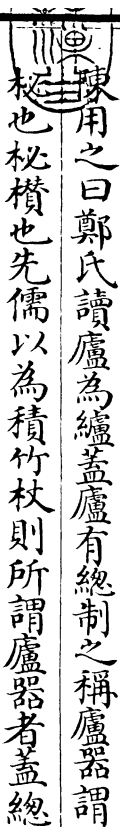 陳用之曰鄭氏讀廬為纑蓋廬有緫制之稱廬器謂
柲也柲欑也先儒以為積竹杖則所謂廬器者蓋緫